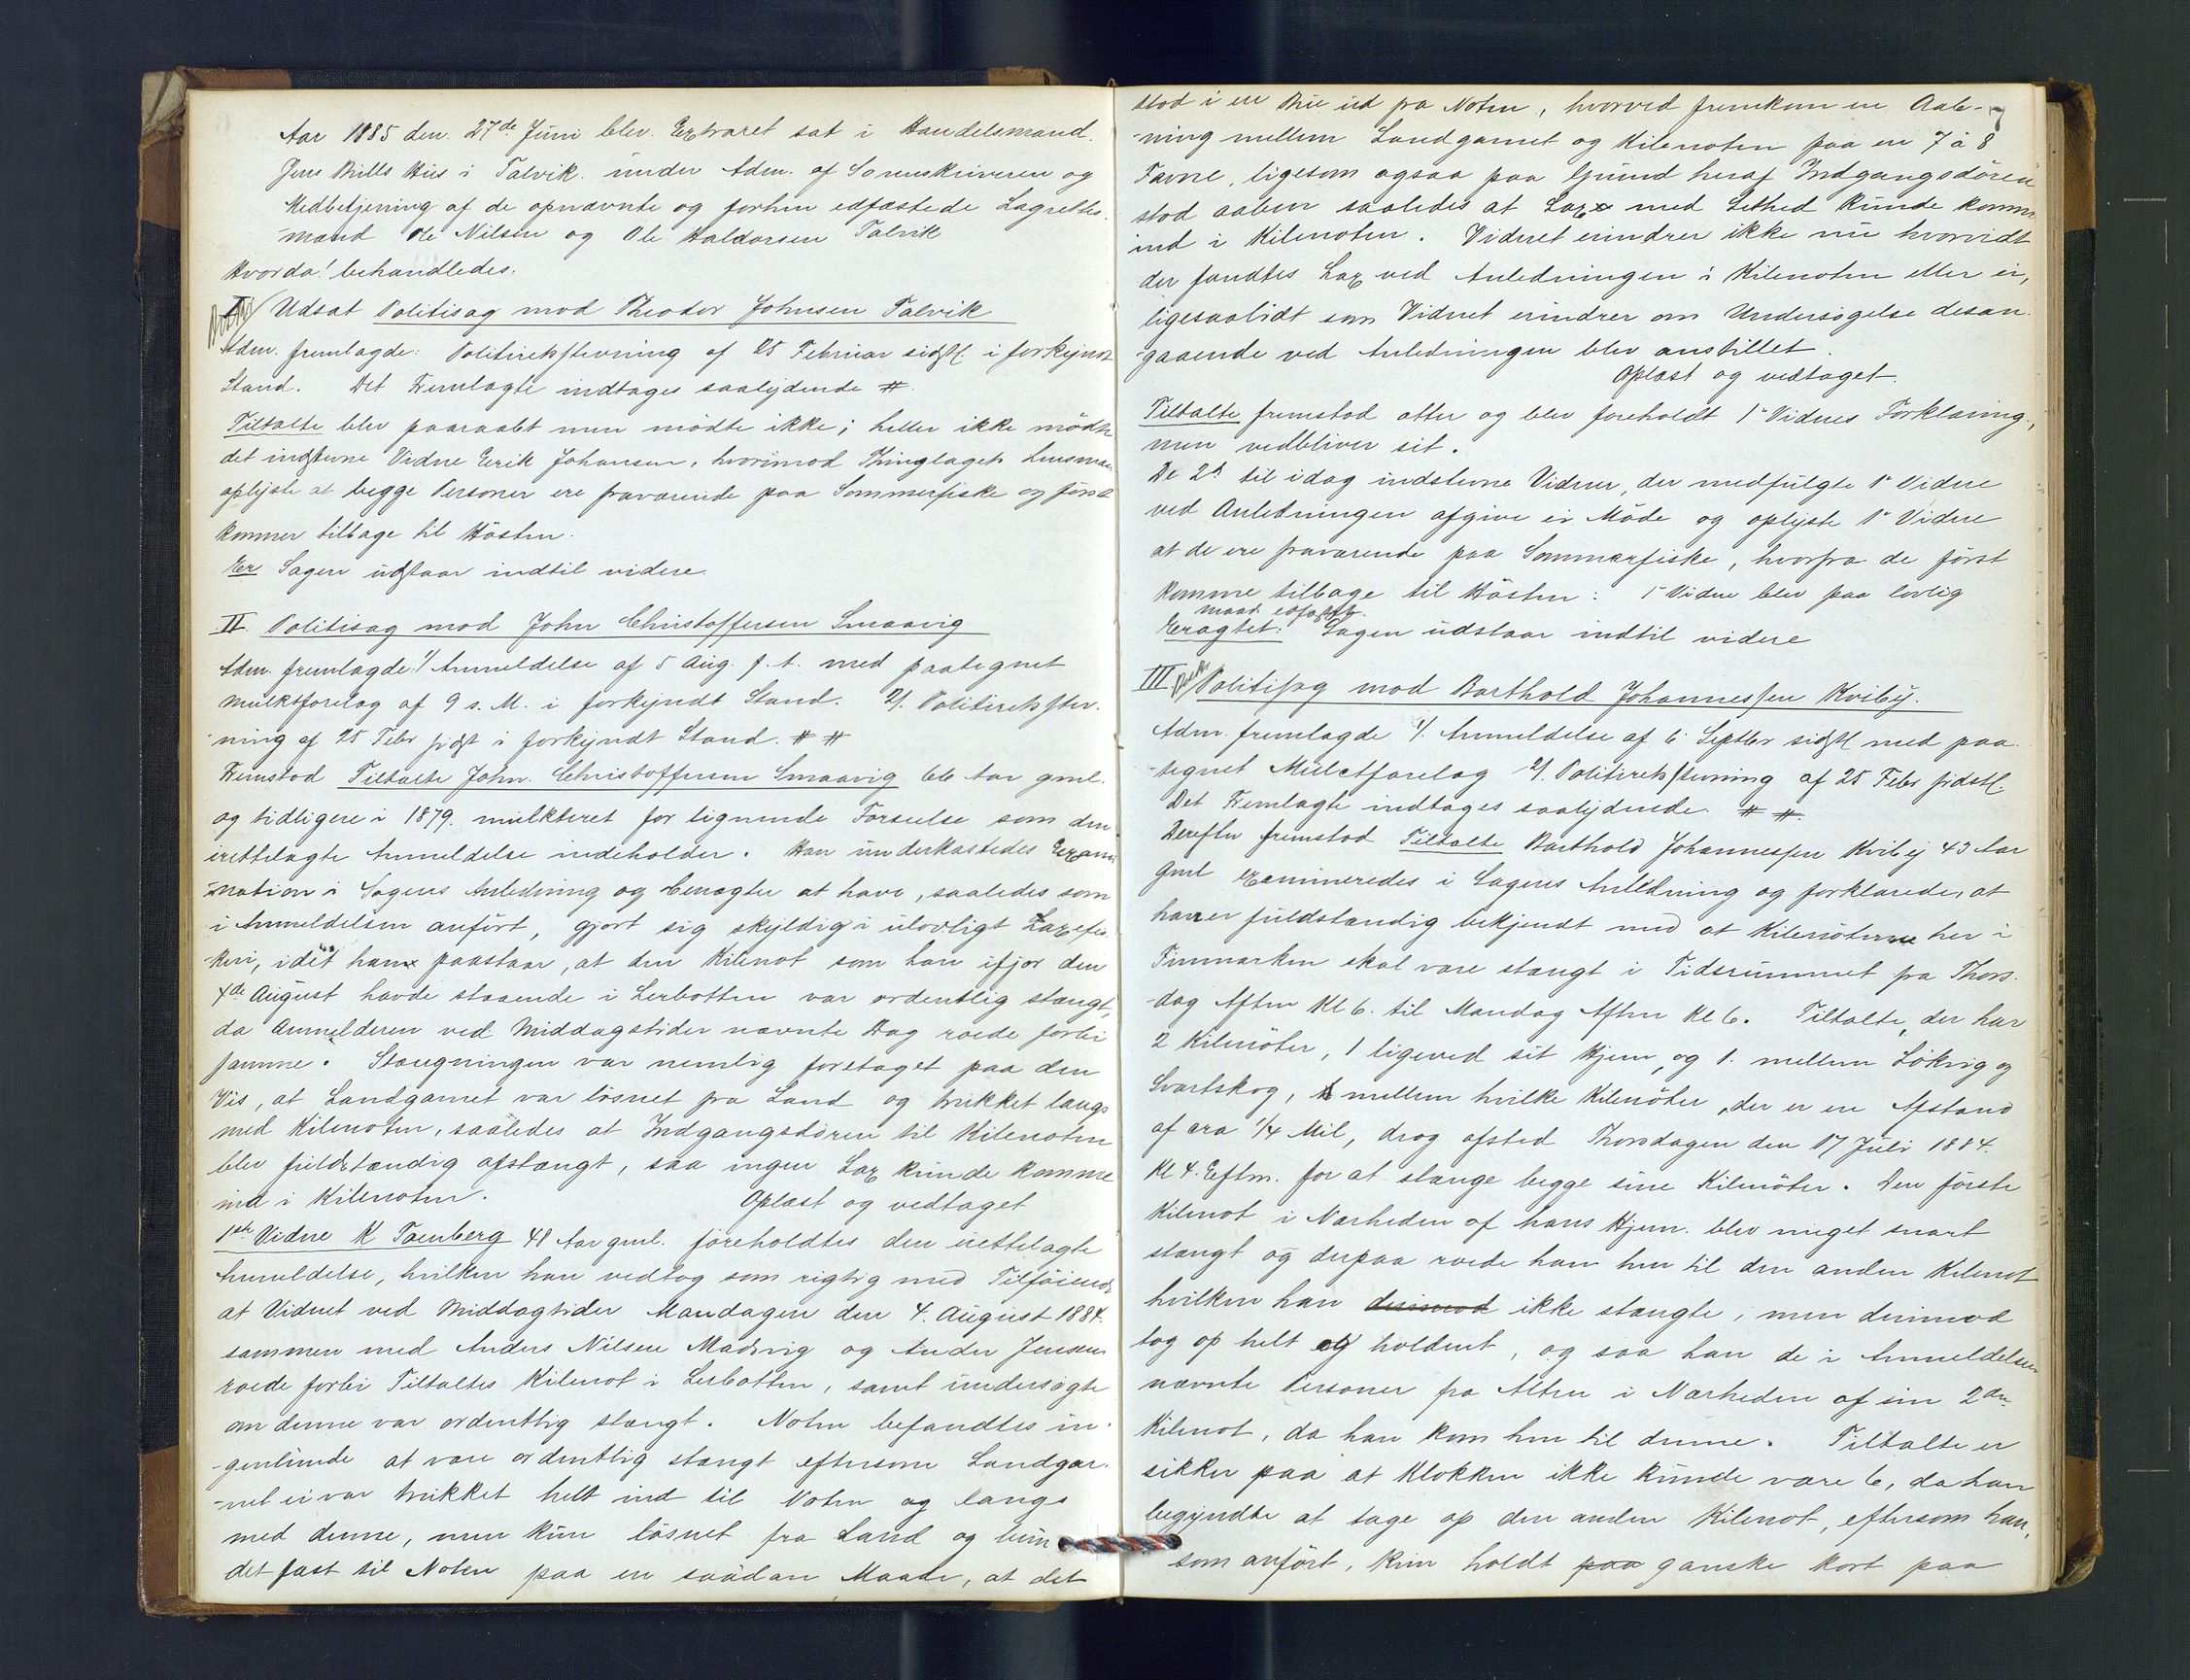 Aar 1885 den 27de Juni blev Extraret sat i Handelsmand
Jens Bulls Hus i Talvik under Adm. af Sorenskriveren og
Medbetjening af de opnævnte og forhen edfæstede Lagrettes-
mænd Ole Nilsen og Ole Haldorsen Talvik
Hvorda! behandledes.
I Udsat Politisag mod Theodor Johnsen Talvik
Adm. fremlagde: Politiretsstevning af 25 Februar sidstl. i forkyndt
Stand. Det Fremlagte indtages saalydende #.
Tiltalte blev paaraabt men mødte ikke; heller ikke mødte
det indstevne Vidne Erik Johansen, hvorimod Thinglagets Lensmand
oplyste at begge Personer ere fraværende paa Sommerfiske og først
kommer tilbage til Høsten.
Er Sagen udstaar indtil videre.
II. Politisag mod John Christoffersen Smaavig
Adm. fremlagde: 1/ Anmeldelse af 5 Aug. f. A. med paategnet
Mulktforelæg af 9 s. M. i forkyndt Stand. 2/. Politiretsstev-
ning af 25 Febr sidst i forkyndt Stand. # #
Fremstod Tiltalte John Christoffersen Smaavig Aar gml.
og tidligere i 1879 mulkteret for lignende Forseelse som den
irettelagte Anmeldelse indeholder. Han underkastedes Exami-
nation i Sagens Anledning og benægter at have, saaledes som
i Anmeldelsen anført, gjort sig skyldig i ulovligt Laxefis-
keri, idet han paastaar, at den Kilenot som han ifjor den
4de August havde staaende i Lerbotten var ordentlig stængt,
da Anmelderen ved Middagstider nævnte Dag roede forbi
samme. Stængningen var nemlig foretaget paa den
Vis, at Landgarnet var løsnet fra Land og trukket langs
med Kilenoten, saaledes at Indgangsdøren til Kilenoten
blev fuldstændig afstængt, saa ingen Lax kunde komme
ind i Kilenoten. Oplæst og vedtaget
1ste Vidne K Tornberg 48 Aar gml. foreholdtes den irettelagte
Anmeldelse, hvilken han vedtog som rigtig med Tilføiende
at Vidnet ved Middagtider Mandagen den 4. August 1884
sammen med Anders Nilsen Madvig og Ander Jensen
roede forbi Tiltaltes Kilenot i Lerbotten, samt undersøgte
om denne var ordentlig stængt. Noten befandtes in-
genlunde at være ordentlig stængt eftersom Landgar-
net ei var trukket helt ind til Noten og langs
med denne, men kun løsnet fra Land og bun-
det fast til Noten paa en saadan Maade, at det
7
stod i en Bue ud fra Noten, hvorved fremkom en Aab-
ning mellem Landgarnet og Kilenoten paa en 7 à 8
Favne, ligesom ogsaa paa Grund heraf Indgangsdøren
stod aaben saaledes at Lax med Lethed kunde komme
ind i Kilenoten. Vidnet erindrer ikke nu hvorvidt
der fandtes Lax ved Anledningen i Kilenoten eller ei,
ligesaalidt som Vidnet erindrer om Undersøgelse desan-
gaaende ved Anledningen blev anstillet.
Oplæst og vedtaget.
Tiltalte fremstod atter og blev foreholdt 1ste Vidnes Forklaring,
men vedbliver sit.
De 2de til idag indstevne Vidner, der medfulgte 1ste Vidne
ved Anledningen afgive ei Møde og oplyste 1ste Vidne
at de ere fraværende paa Sommerfiske, hvorfra de først
komme tilbage til Høsten: 1 Vidne blev paa lovlig
maade edfæstet.
Eragtet: Sagen udstaar indtil videre
III Politisag mod Barthold Johannessen Kviby.
Adm. fremlagde 1/. Anmeldelse af 6 Septbr sidstl med paa-
tegnet Mulctforelæg 2/. Politiretsstevning af 25 Febr sidstl.
Det Fremlagte indtages saalydende # #.
Derefter fremstod Tiltalte Barthold Johannessen Kviby 43 Aar
gml examineredes i Sagens Anledning og forklarede, at
han er fuldstændig bekjendt med at Kilenøterne her i
Finmarken skal være stængt i Tidsrummet fra Thors-
dag Aften Kl 6. til Mandag Aften Kl 6. Tiltalte, der har
2 Kilenøter, 1 ligeved sit Hjem, og 1. mellem Løkvig og
Svartskog, mellem hvilke Kilenøter, der er en Afstand
af cra 1/4 Mil, drog afsted Thorsdagen den 17 Juli 1884.
Kl 4. Eftm. for at stænge begge sine Kilenøter. Den første
Kilenot i Nærheden af hans Hjem blev meget snart
stængt og derpaa roede han hen til den anden Kilenot
hvilken han derimod ikke stængte, men derimod
tog op helt og holdent, og saa han de i Anmeldelsen
nævnte Personer fra Alten i Nærheden af sin 2den
Kilenot, da han kom hen til denne. Tiltalte er
sikker paa at Klokken ikke kunde være 6, da han
begyndte at tage op den anden Kilenot, eftersom han,
som anført, kun holdt paa ganske kort paa